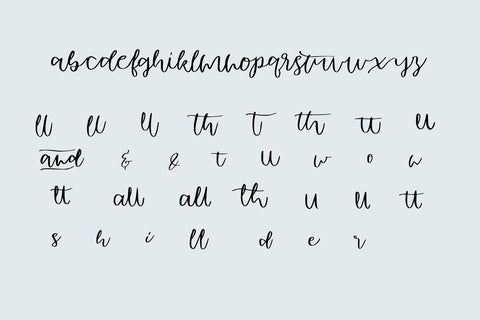 abcdefghiklmnopqrstuvwxyz
ll ll ll th t th tt u
and & & t u w o w
tt all all th u ll tt
s h i ll d e r